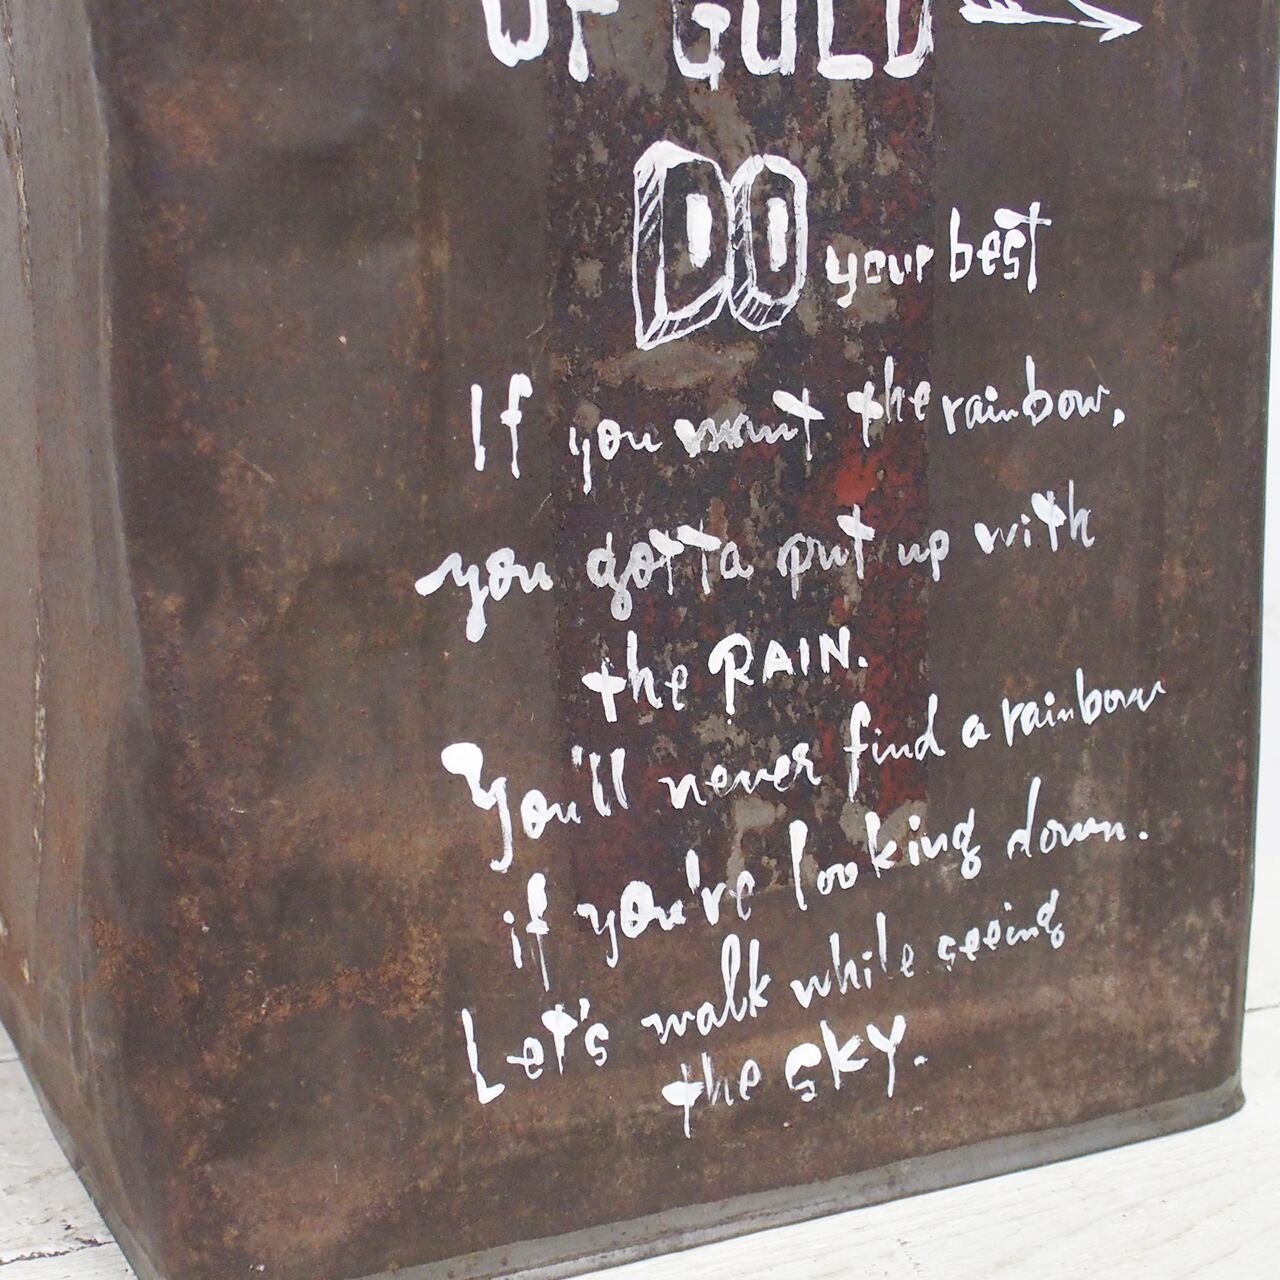 OF GOLD
DO your best
If you want the rainbow,
you gotta put up with
the RAIN.
You'll never find a rainbow
if you're looking down.
Let's walk while seeing
the sky.